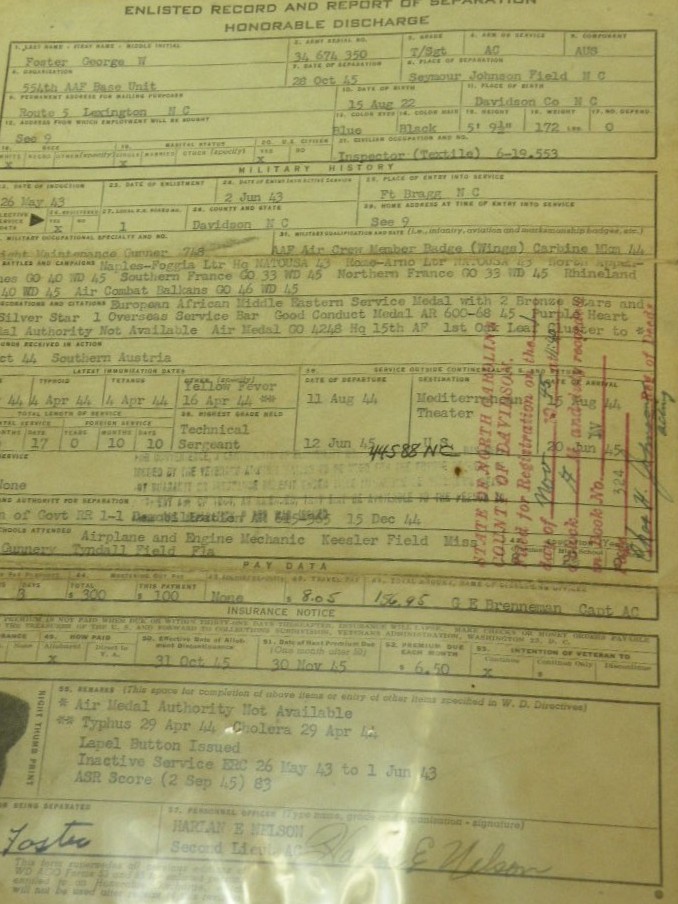 ENLISTED RECORD AND REPORT OF SEPARATION
HONORABLE DISCHARGE
1. LAST NAME - FIRST NAME - MIDDLE INITIAL 2. ARMY SERIAL NO. 3. GRADE 4. ARM OR SERVICE 5. COMPONENT
Foster George W 34 674 350 T/Sgt AC AUS
6. ORGANIZATION 7. DATE OF SEPARATION 8. PLACE OF SEPARATION
554th AAF Base Unit 28 Oct 45 Seymour Johnson Field N C
9. PERMANENT ADDRESS FOR MAILING PURPOSES 10. DATE OF BIRTH 11. PLACE OF BIRTH
Route 5 Lexington N C 15 Aug 22 Davidson Co N C
12. ADDRESS FROM WHICH EMPLOYMENT WILL BE SOUGHT 13. COLOR EYES 14. COLOR HAIR 15. HEIGHT 16. WEIGHT 17. NO. DEPEND.
See 9 Blue Black 5' 9½" 172 LBS 0
18. RACE 19. MARITAL STATUS 20. U.S. CITIZEN 21. CIVILIAN OCCUPATION AND NO.
x x x Inspector (Textile) 6-19.553
MILITARY HISTORY
22. DATE OF INDUCTION 23. DATE OF ENLISTMENT 24. DATE OF ENTRY INTO ACTIVE SERVICE 25. PLACE OF ENTRY INTO SERVICE
26 May 43 2 Jun 43 Ft Bragg N C
COUNTY AND STATE HOME ADDRESS AT TIME OF ENTRY INTO SERVICE
x 1 Davidson N C See 9
MILITARY OCCUPATIONAL SPECIALTY AND NO. 31. MILITARY QUALIFICATION AND DATE (i.e., infantry, aviation and marksmanship badges, etc.)
Maintenance Gunner 748 AAF Air Crew Member Badge (Wings) Carbine Mkm 44
BATTLES AND CAMPAIGNS Naples-Foggia Ltr Hq NATOUSA 43 Rome-Arno Ltr NATOUSA 43 North
GO 40 WD 45 Southern France GO 33 WD 45 Northern France GO 33 WD 45 Rhineland
40 WD 45 Air Combat Balkans GO 46 WD 45
DECORATIONS AND CITATIONS European African Middle Eastern Service Medal with 2 Bronze Stars and
Silver Star 1 Overseas Service Bar Good Conduct Medal AR 600-68 45 Purple Heart
Authority Not Available Air Medal GO 4248 Hq 15th AF 1st Oak Leaf Cluster to *
WOUNDS RECEIVED IN ACTION
Oct 44 Southern Austria
LATEST IMMUNIZATION DATES SERVICE OUTSIDE CONTINENTAL
TYPHOID TETANUS OTHER (specify) DATE OF DEPARTURE DESTINATION DATE OF ARRIVAL
44 4 Apr 44 4 Apr 44 Yellow Fever 16 Apr 44 ** 11 Aug 44 Mediterranean Theater 15 Aug 44
TOTAL LENGTH OF SERVICE FOREIGN SERVICE 38. HIGHEST GRADE HELD
MONTHS DAYS YEARS MONTHS DAYS Technical
17 0 10 10 Sergeant 12 Jun 45 U.S. 20 Jun 45
44588 NC
None
AUTHORITY FOR SEPARATION
of Govt AR 1-1 Demobilization AR 615-365 15 Dec 44
SCHOOLS ATTENDED Airplane and Engine Mechanic Keesler Field Miss
Gunnery Tyndall Field Fla
STATE OF NORTH CAROLINA
COUNTY OF DAVIDSON.
Filed for Registration on the
day of Nov
in Book No.
Page 324
Reg. of Deeds
PAY DATA
8 $ 300 $ 100 None $ 8.05 156.95 G E Brenneman Capt AC
INSURANCE NOTICE
HOW PAID 50. Effective Date of Allotment Discontinuance 51. Date of Next Premium Due (One month after 50) 52. PREMIUM DUE EACH MONTH 53. INTENTION OF VETERAN TO
x 31 Oct 45 30 Nov 45 $ 6.50 x
RIGHT THUMB PRINT
55. REMARKS (This space for completion of above items or entry of other items specified in W. D. Directives)
* Air Medal Authority Not Available
** Typhus 29 Apr 44 Cholera 29 Apr 44
Lapel Button Issued
Inactive Service ERC 26 May 43 to 1 Jun 43
ASR Score (2 Sep 45) 83
BEING SEPARATED 57. PERSONNEL OFFICER (Type name, grade and organization - signature)
Foster HARLAN E NELSON
Second Lieut AC Harlan E Nelson